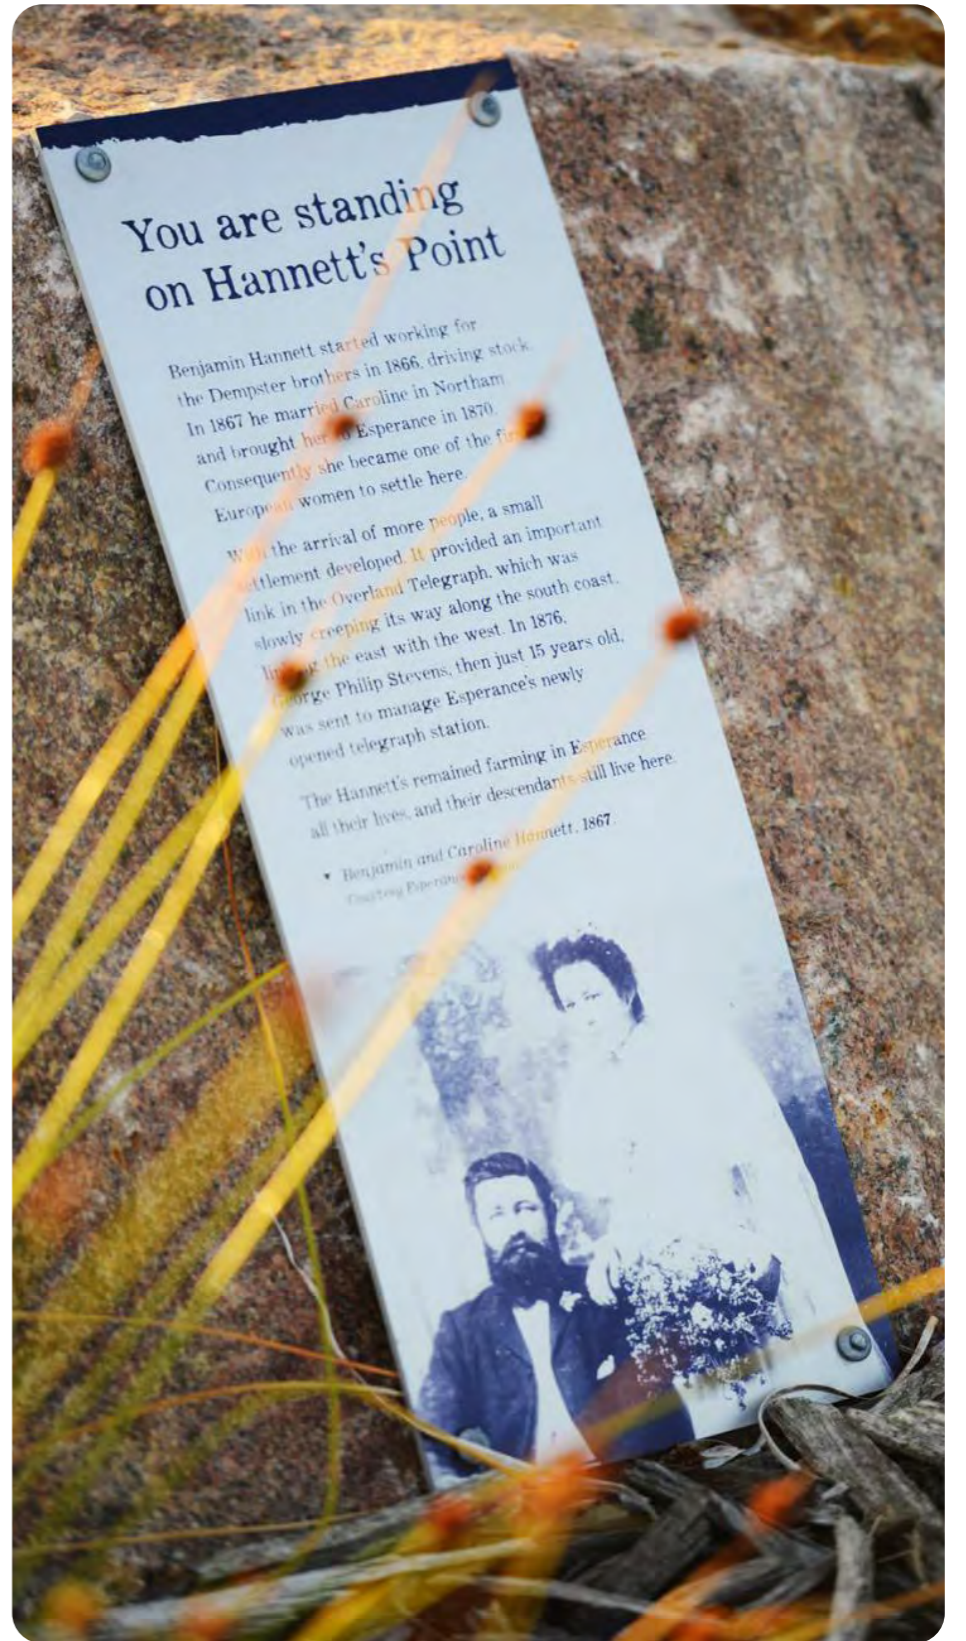 You are standing
on Hannett's Point
Benjamin Hannett started working for
the Dempster brothers in 1866, driving stock.
In 1867 he married Caroline in Northam
and brought her to Esperance in 1870.
Consequently she became one of the first
European women to settle here.
With the arrival of more people, a small
settlement developed. It provided an important
link in the Overland Telegraph, which was
slowly creeping its way along the south coast,
linking the east with the west. In 1876,
George Philip Stevens, then just 15 years old,
was sent to manage Esperance's newly
opened telegraph station.
The Hannett's remained farming in Esperance
all their lives, and their descendants still live here.
Benjamin and Caroline Hannett, 1867
Courtesy Esperance